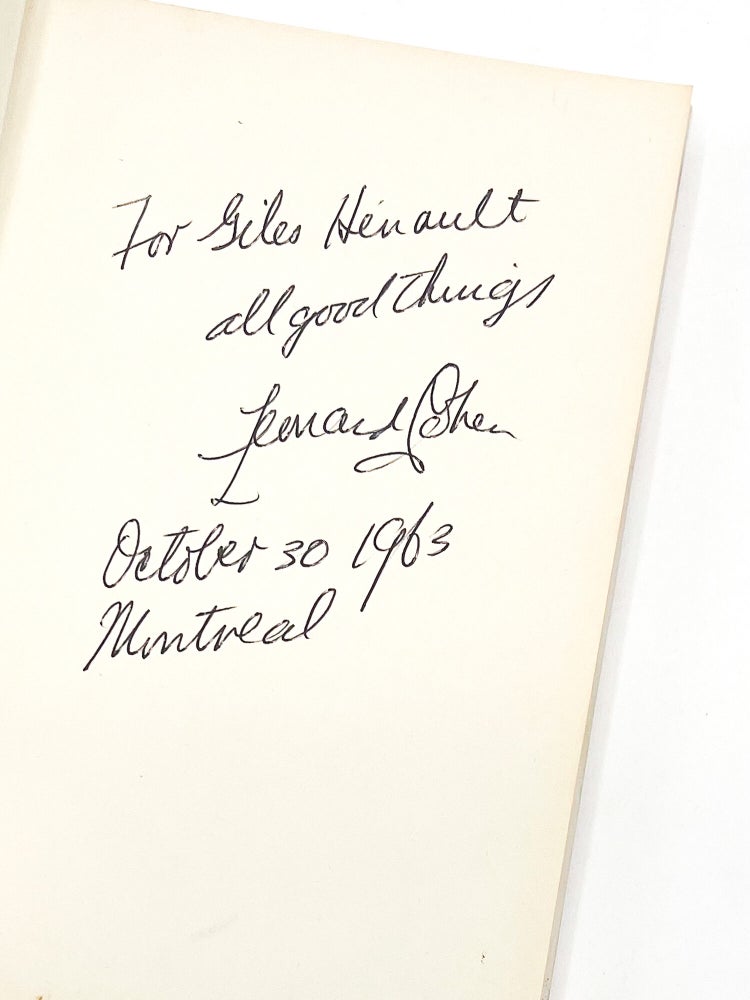 For Giles Hénault
all good things
Leonard Cohen
October 30 1963
Montreal